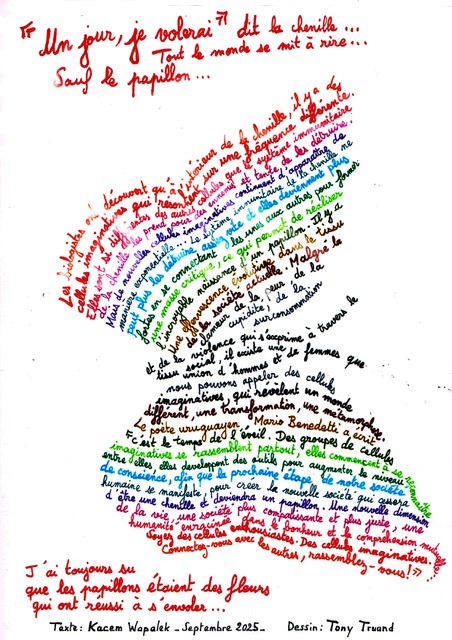 " Un jour, je volerai " dit la chenille ...
Tout le monde se mit à rire ...
Sauf le papillon ...
Les biologistes ont découvert qu'à l'intérieur de la chenille, il y a des
cellules imaginatives qui résonnent sur une fréquence différente.
Elles sont si différentes des autres cellules que le système immunitaire
de la chenille les prend pour des ennemis et tente de les détruire.
Mais de nouvelles cellules imaginatives continuent d'apparaître de
manière exponentielle... Le système immunitaire de la chenille ne
peut plus les détruire assez vite et elles deviennent plus
fortes en se connectant les unes aux autres pour former
une masse critique, ce qui permet de réaliser
l'incroyable naissance d'un papillon. Il y a
Une effervescence évolutive dans le tissu
de la société actuelle. Malgré la
clameur de la peur, de la
cupidité, de la
surconsommation
et de la violence qui s'exprime à travers le
tissu social, il existe une
union d'hommes et de femmes que
nous pouvons appeler des cellules
imaginatives qui révèlent un monde
différent, une transformation, une métamorphose.
Le poète uruguayen Mario Benedetti a écrit
" c'est le temps de l'éveil. Des groupes de cellules
imaginatives se rassemblent partout, elles commencent à se reconnaître
entre elles elles developent des outils pour augmenter le niveau
de conscience, afin que la prochaine étape de notre société
humaine se manifeste, pour créer la nouvelle société qui cessera
d'être une chenille et deviendra un papillon. Une nouvelle dimension
de la vie, une société plus compatissante et plus juste, une
humanité enracinée dans le bonheur et la compréhension mutuelle.
Soyez des cellules enthousiastes. Des cellules imaginatives.
Connectez-vous avec les autres, rassemblez-vous! "
J'ai toujours su
que les papillons étaient des fleurs
qui ont réussi à s'envoler...
Texte: Kacem Wapalek - Septembre 2025 - Dessin: Tony Truand